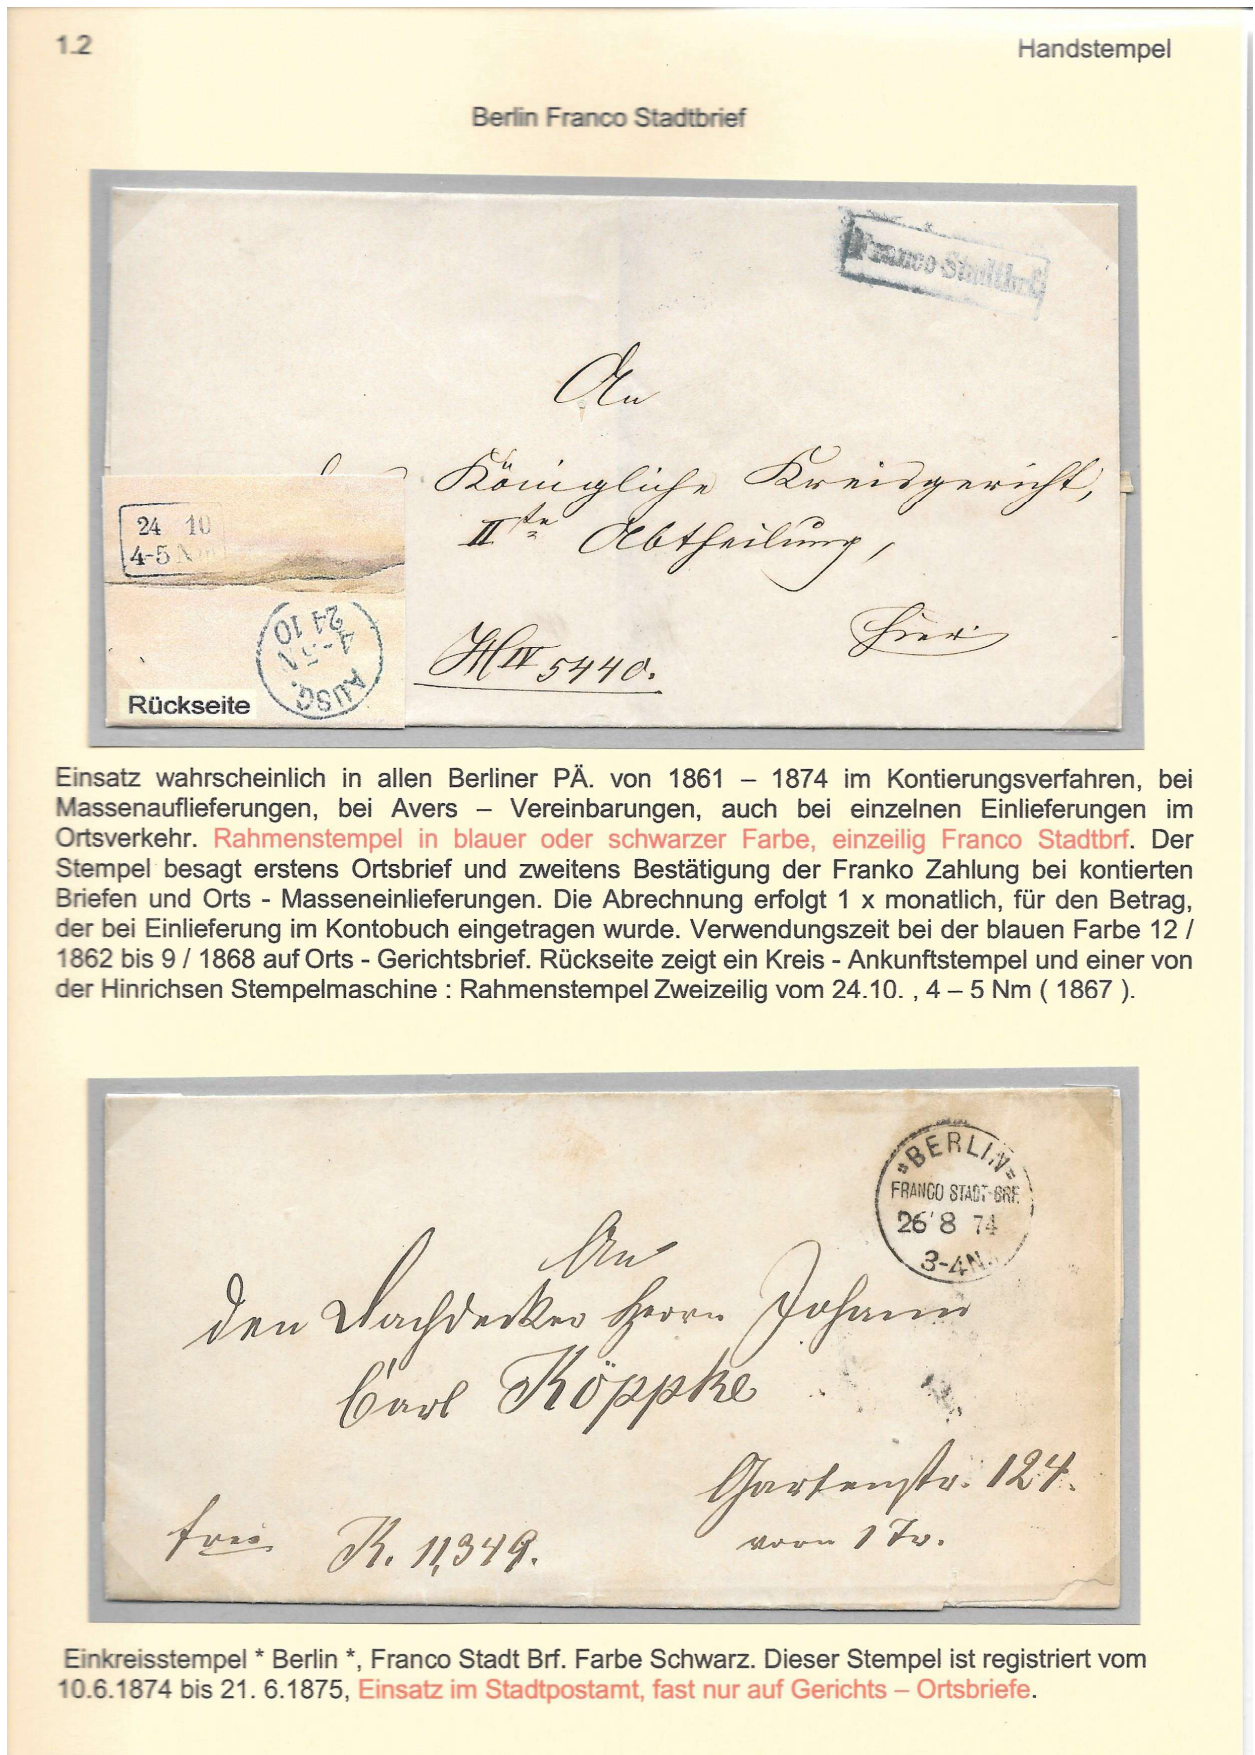 1.2
Handstempel
Berlin Franco Stadtbrief
Franco Stadtbrf.
An
Königliche Kreisgericht,
II te Abtheilung,
Hier
M IV 5440.
24 10
4-5 N
24 10
4-5 N
AUSG.
Rückseite
Einsatz wahrscheinlich in allen Berliner PÄ. von 1861 – 1874 im Kontierungsverfahren, bei
Massenauflieferungen, bei Avers – Vereinbarungen, auch bei einzelnen Einlieferungen im
Ortsverkehr. Rahmenstempel in blauer oder schwarzer Farbe, einzeilig Franco Stadtbrf. Der
Stempel besagt erstens Ortsbrief und zweitens Bestätigung der Franko Zahlung bei kontierten
Briefen und Orts - Masseneinlieferungen. Die Abrechnung erfolgt 1 x monatlich, für den Betrag,
der bei Einlieferung im Kontobuch eingetragen wurde. Verwendungszeit bei der blauen Farbe 12 /
1862 bis 9 / 1868 auf Orts - Gerichtsbrief. Rückseite zeigt ein Kreis - Ankunftstempel und einer von
der Hinrichsen Stempelmaschine : Rahmenstempel Zweizeilig vom 24.10. , 4 – 5 Nm ( 1867 ).
"BERLIN"
FRANCO STADT-BRF.
26 8 74
3-4N.
An
den Dachdecker Herrn Johann
Carl Köppke
Gartenstr. 124.
vorn 1 Tr.
frei
K. 11,349.
Einkreisstempel * Berlin *, Franco Stadt Brf. Farbe Schwarz. Dieser Stempel ist registriert vom
10.6.1874 bis 21. 6.1875, Einsatz im Stadtpostamt, fast nur auf Gerichts – Ortsbriefe.